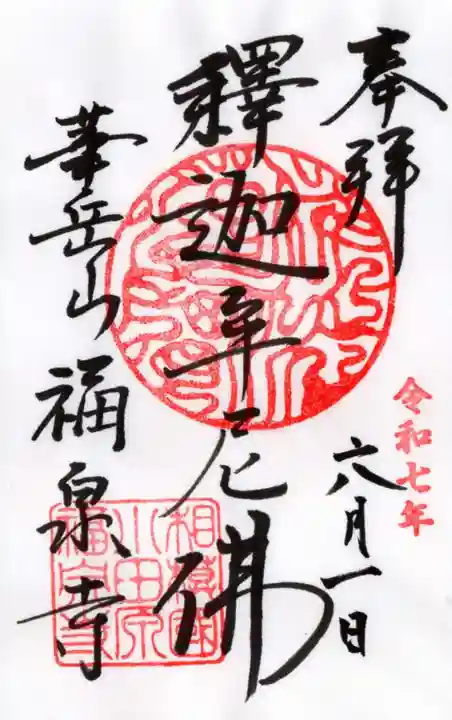 奉拜
令和七年
六月一日
釋迦牟尼佛
華岳山福泉寺
相模國
小田原
福泉寺